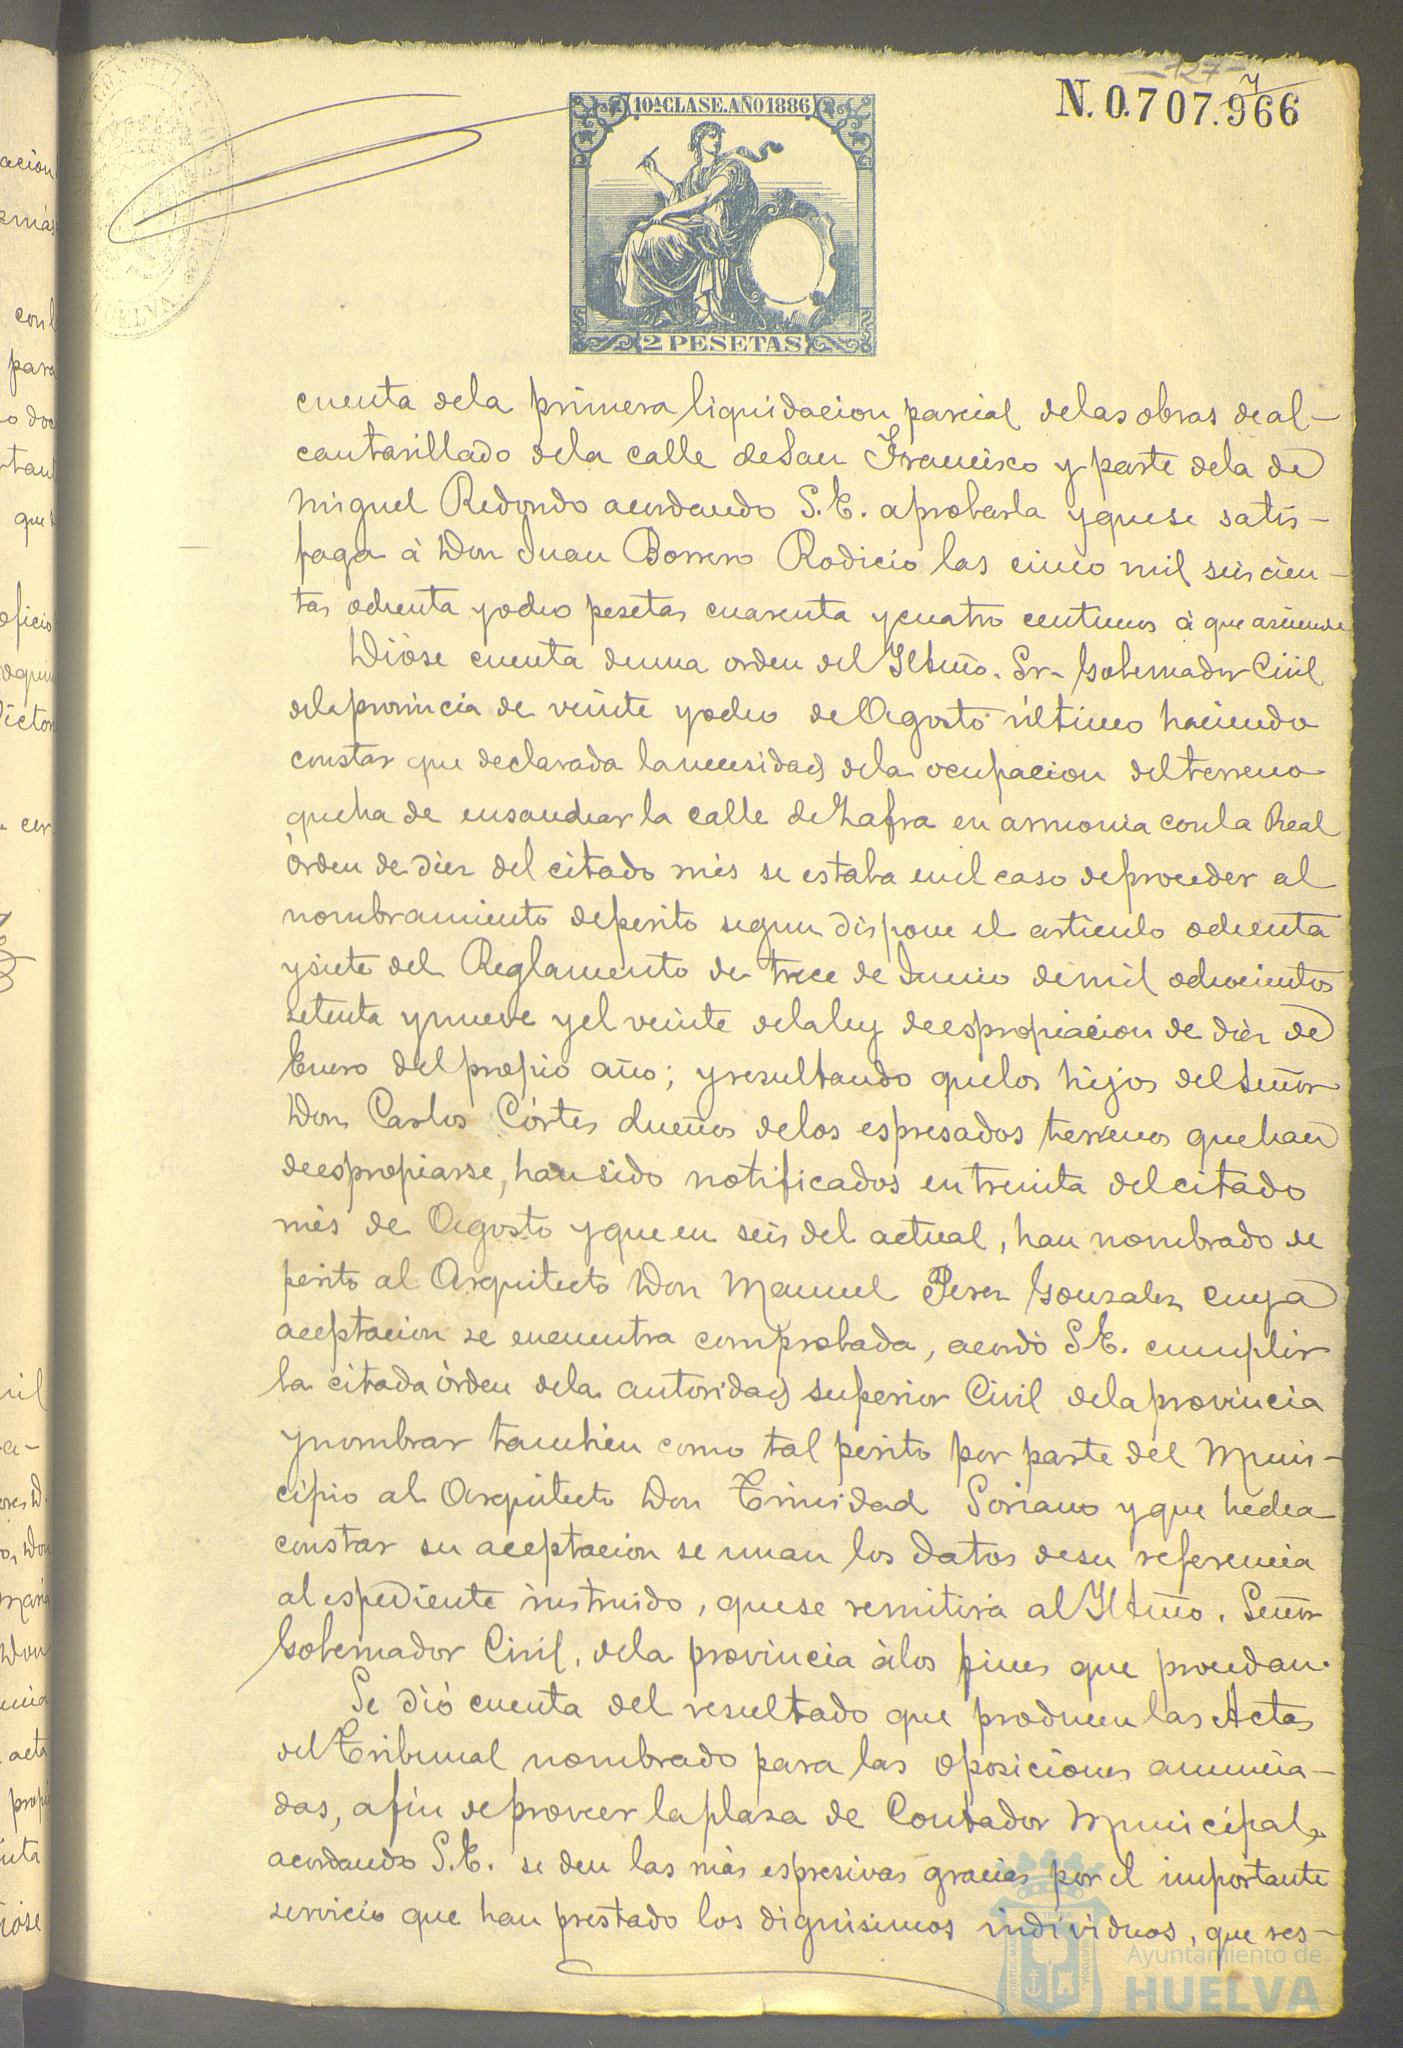 127
7
N. 0.707.966
10ª CLASE. AÑO 1886
2 PESETAS
HUELVA
cuenta dela primera liquidacion parcial delas obras de al-
cantarillado dela calle de San Francisco y parte dela de
Miguel Redondo acordando S. E. aprobarla y que se satis-
faga á Don Juan Borrero Rodicio las cinco mil seiscien-
tas ochenta y ocho pesetas cuarenta y cuatro centimos á que asciende
Dióse cuenta de una orden del Iltmo. Sr. Gobernador Civil
dela provincia de veinte y ocho de Agosto último haciendo
constar que declarada la necesidad dela ocupacion del terreno
que ha de ensanchar la calle de Zafra en armonia con la Real
órden de diez del citado més se estaba en el caso de proceder al
nombramiento de perito segun dispone el articulo ochenta
y siete del Reglamento de trece de Junio de mil ochocientos
setenta y nueve y el veinte dela ley de espropiacion de diez de
Enero del propio año; y resultando que los hijos del Señor
Don Carlos Córtes dueños delos espresados terrenos que han
de espropiarse, han sido notificados en treinta del citado
més de Agosto y que en seis del actual, han nombrado de
perito al Arquitecto Don Manuel Perez Gonzalez cuya
aceptacion se encuentra comprobada, acordó S. E. cumplir
la citada órden dela autoridad superior Civil dela provincia
y nombrar tambien como tal perito por parte del Muni-
cipio al Arquitecto Don Trinidad Soriano y que hecha
constar su aceptacion se unan los datos de su referencia
al espediente instruido, que se remitirá al Iltmo. Señor
Gobernador Civil, dela provincia á los fines que procedan.
Se dió cuenta del resultado que producen las Actas
del Tribunal nombrado para las oposiciones anuncia-
das, afin de proveer la plaza de Contador Municipal,
acordando S. E. se den las más espresivas gracias por el importante
servicio que han prestado los dignisimos individuos, que res-
Ayuntamiento de
HUELVA